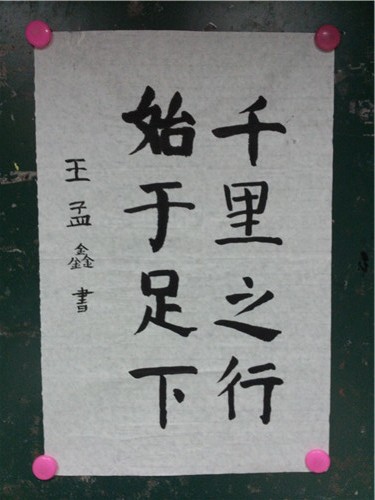 千里之行
始于足下
王孟鑫書